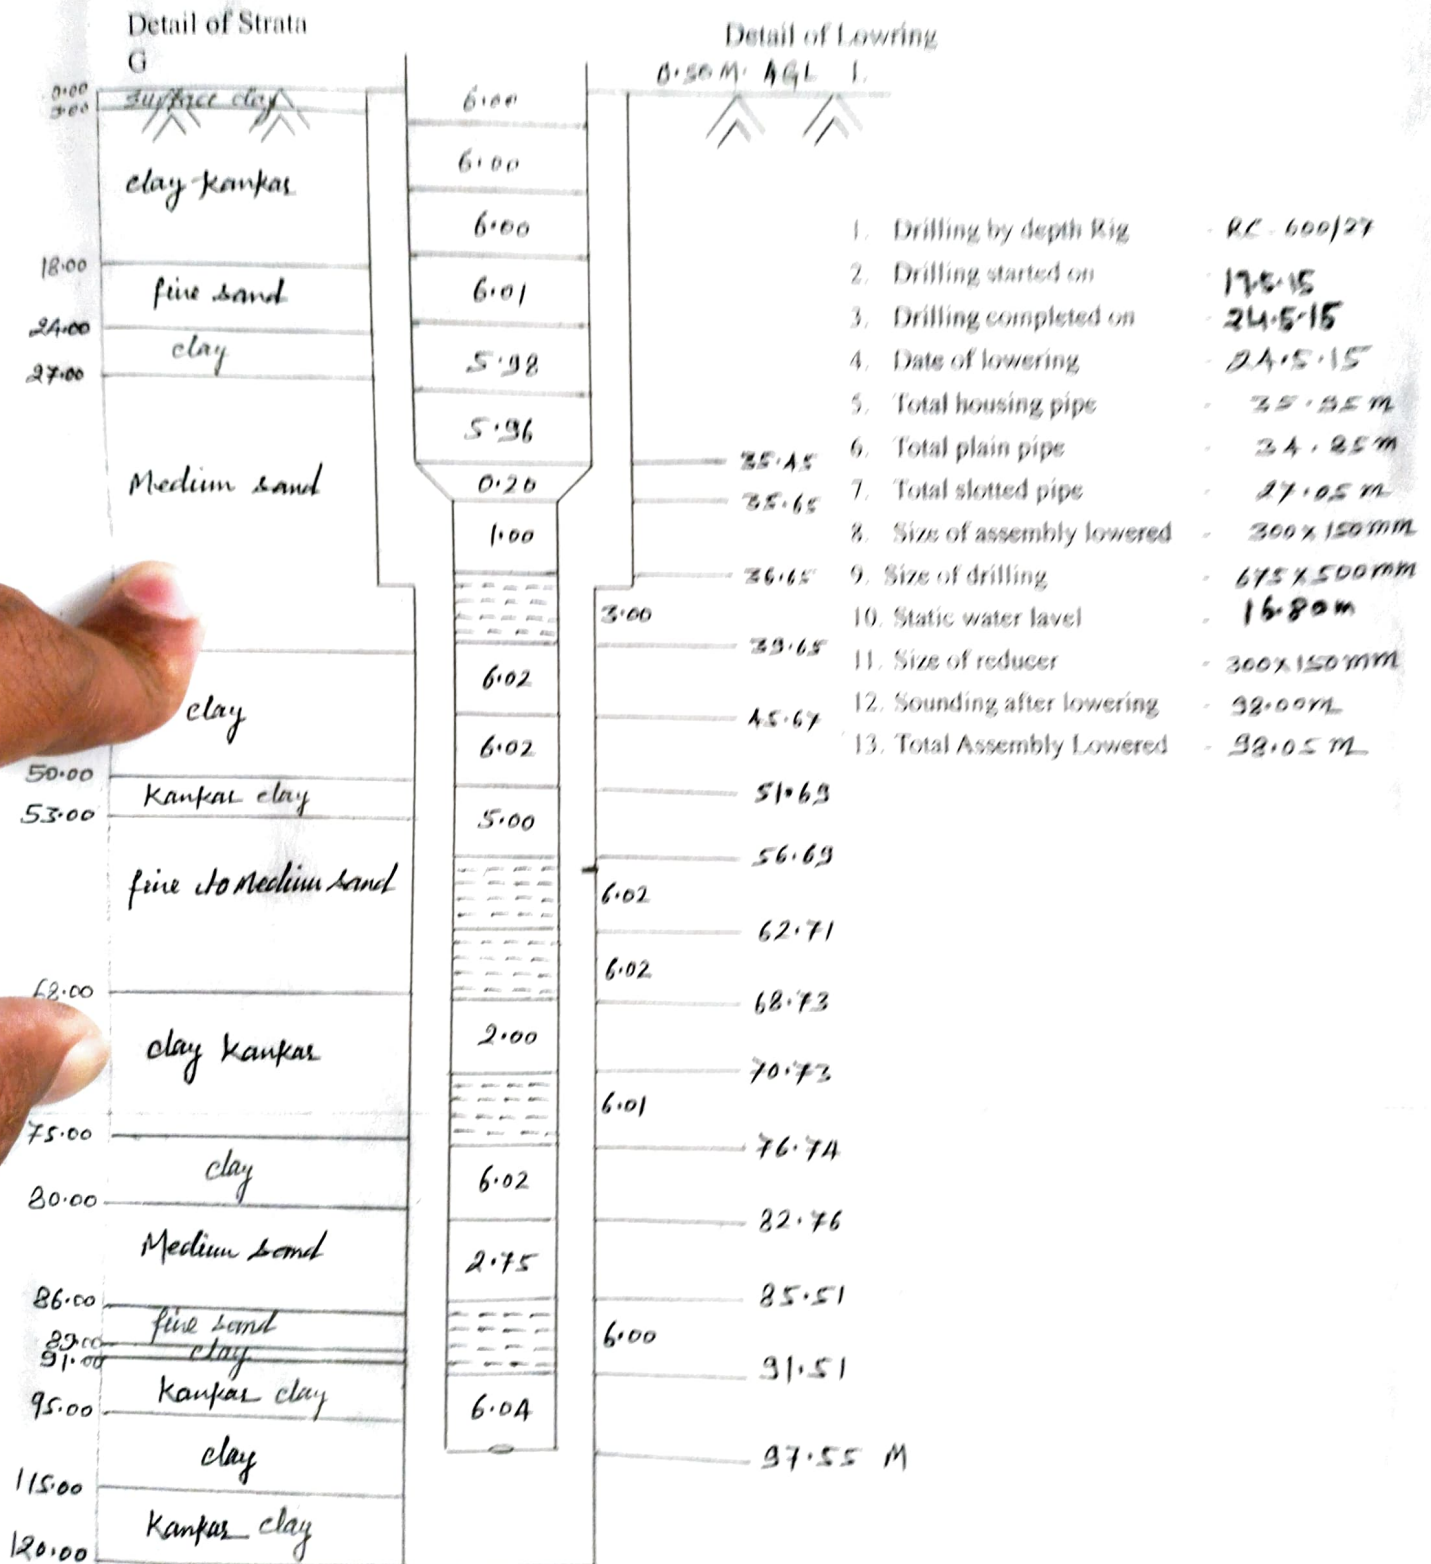 Detail of Strata
G
0.00
3.00
surface clay
clay kankar
18.00
fine sand
24.00
clay
27.00
Medium sand
clay
50.00
Kankar clay
53.00
fine to Medium sand
68.00
clay Kankar
75.00
clay
80.00
Medium sand
86.00
fine sand
89.00
clay
91.00
Kankar clay
95.00
clay
115.00
Kankar clay
120.00
6.00
6.00
6.00
6.01
5.98
5.96
0.20
1.00
3.00
6.02
6.02
5.00
6.02
6.02
2.00
6.01
6.02
2.75
6.00
6.04
Detail of Lowring
0.50 M. AGL
35.45
35.65
36.65
39.65
45.67
51.69
56.69
62.71
68.73
70.73
76.74
82.76
85.51
91.51
97.55 M
1. Drilling by depth Rig - RC - 600/27
2. Drilling started on - 17.5.15
3. Drilling completed on - 24.5.15
4. Date of lowering - 24.5.15
5. Total housing pipe - 35.95 m
6. Total plain pipe - 34.85 m
7. Total slotted pipe - 27.05 m
8. Size of assembly lowered - 300 x 150 mm
9. Size of drilling - 675 x 500 mm
10. Static water lavel - 16.80 m
11. Size of reducer - 300 x 150 mm
12. Sounding after lowering - 98.00 m
13. Total Assembly Lowered - 98.05 m